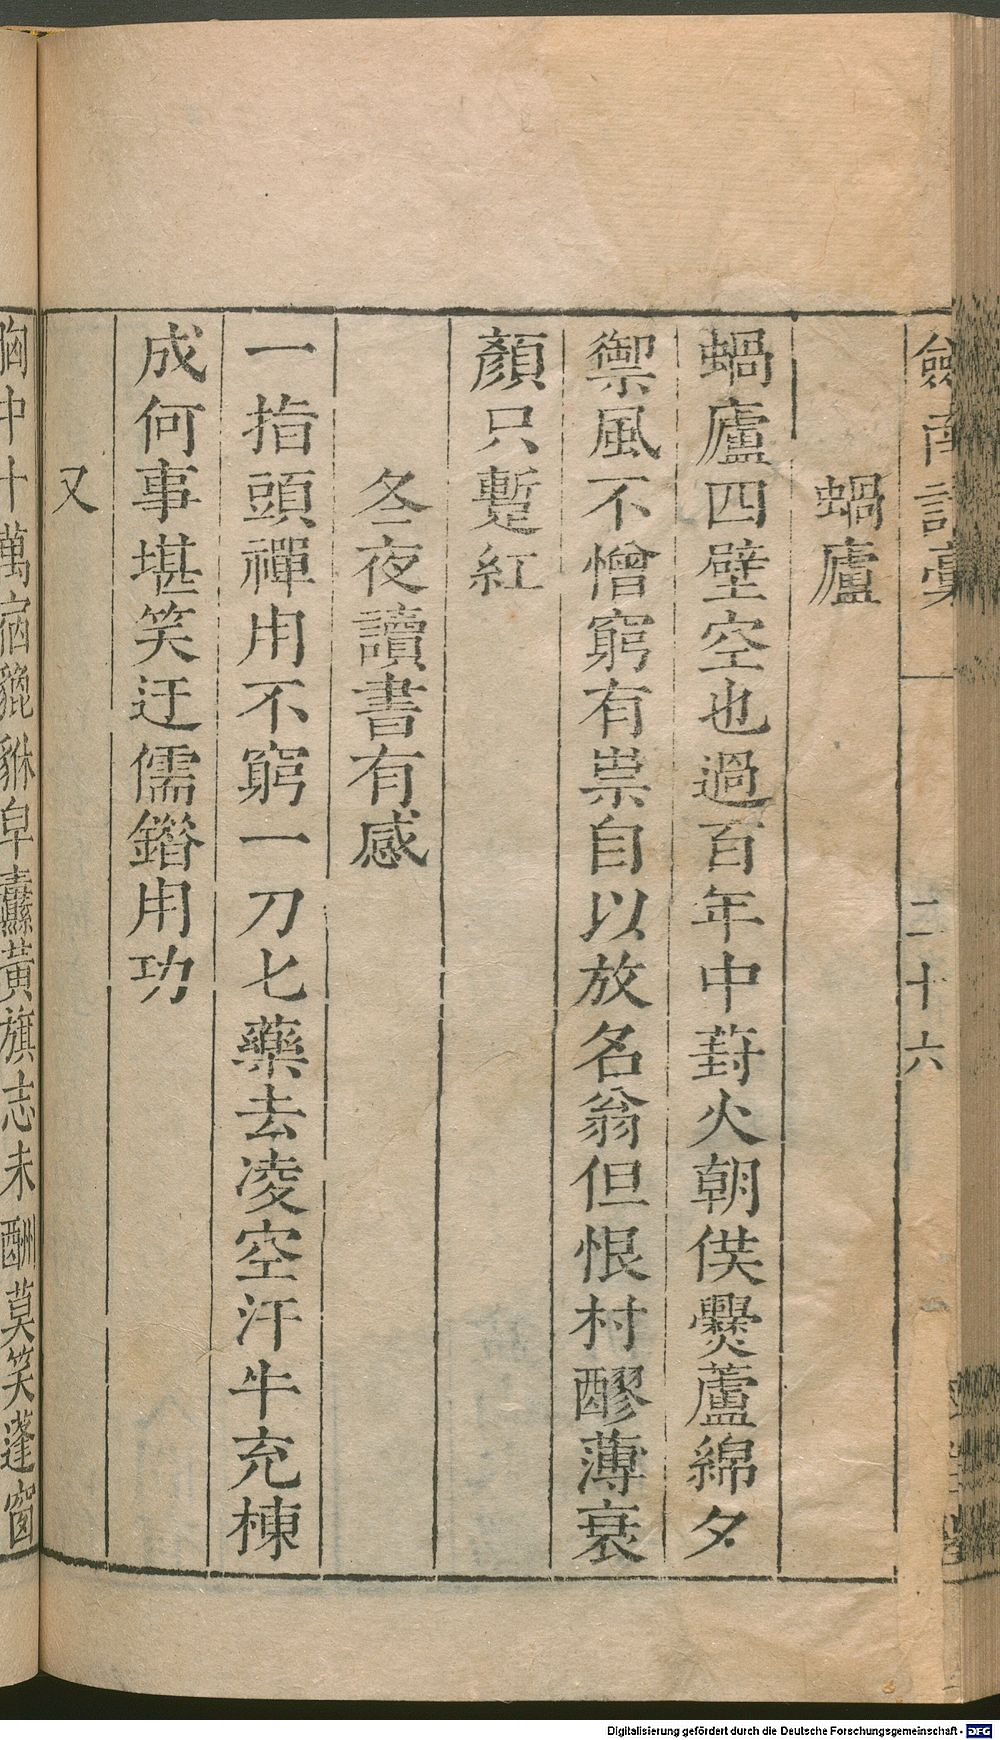 劍南詩稾
二十六
蝸廬
蝸廬四壁空也過百年中葑火朝供爨蘆綿夕
御風不憎窮有祟自以放名翁但恨村醪薄衰
顏只蹔紅
冬夜讀書有感
一指頭禪用不窮一刀匕藥去凌空汗牛充棟
成何事堪笑迂儒錯用功
又
胸中十萬宿貔貅皁纛黃旗志未酬莫笑蓬窗
Digitalisierung gefördert durch die Deutsche Forschungsgemeinschaft - DFG